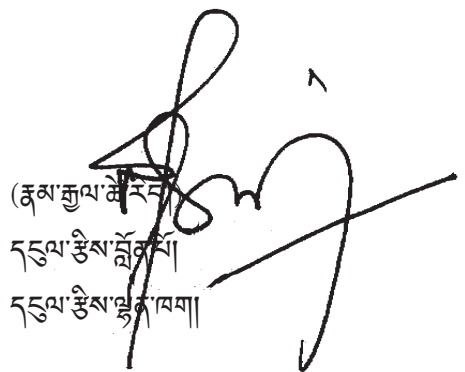 (རྣམ་རྒྱལ་ཚེ་རིང་)
དངུལ་རྩིས་བློན་པོ།
དངུལ་རྩིས་ལྷན་ཁག།